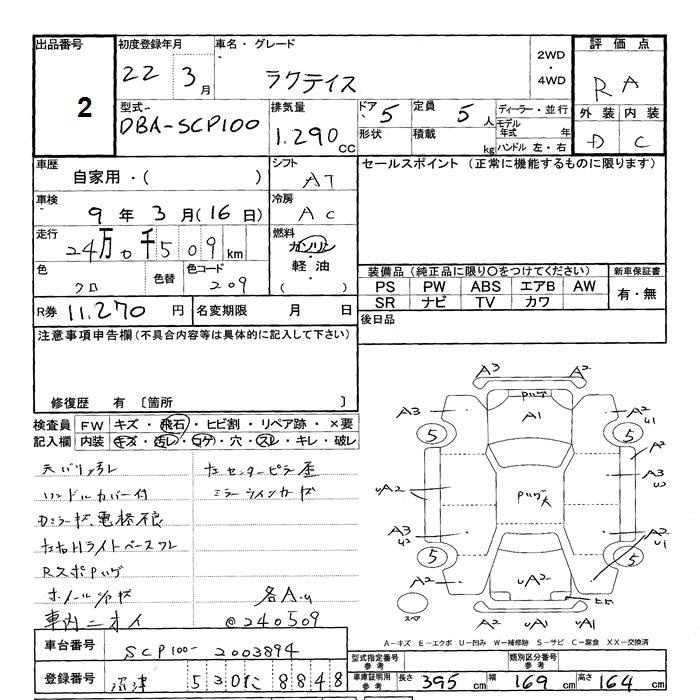 出品番号
2
初度登録年月
22 3月
車名・グレード
ラクティス
2WD
・
4WD
評価点
R A
外装 内装
D C
型式
DBA-SCP100
排気量
1.290cc
ドア 5
定員 5人
形状
積載 kg
ディーラー・並行
モデル年式 年
ハンドル 左・右
車歴
自家用・( )
シフト
AT
セールスポイント (正常に機能するものに限ります)
車検
9年 3月(16日)
冷房
AC
走行
24万0千509km
燃料
ガソリン
軽油
( )
色
クロ
色替
色コード
209
装備品(純正品に限り〇をつけてください)
新車保証書
PS PW ABS エアB AW
SR ナビ TV カワ
有・無
R券 11.270円
名変期限 月 日
後日品
注意事項申告欄(不具合内容等は具体的に記入して下さい)
修復歴 有 〔箇所 〕
検査員 FW キズ・飛石・ヒビ割・リペア跡・×要
記入欄 内装 キズ・汚レ・コゲ・穴・スレ・キレ・破レ
天バリ汚レ
ハンドルカバー付
Dミラーキズ、電格不良
左右Hライトベースワレ
RスポPハゲ
ホイールキズ
車内ニオイ
左センターピラー
ミラーウインカーキズ
各A.U
@240509
A3 A2
Pハゲ
A1
A3
A2
U1
5 5
A2
A3
U2
UA2
Pハゲ大
A3
U2
A2
U1
5 5
A2
UA2
ヒビ
A2 UA1 UA1
スペア
A-キズ E-エクボ U-凹み W-補修跡 S-サビ C-腐食 XX-交換済
車台番号
SCP100-2003894
登録番号
沼津 530 た 8848
型式指定番号
参考
類別区分番号
参考
車庫証明用
参考
長さ 395cm
幅 169cm
高さ 164cm